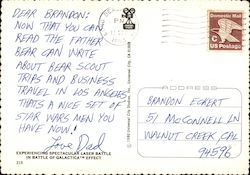 DEAR BRANDON:
NOW THAT YOU CAN
READ THE FATHER
BEAR CAN WRITE
ABOUT BEAR SCOUT
TRIPS AND BUSINESS
TRAVEL IN LOS ANGELES
THATS A NICE SET OF
STAR WARS MEN YOU
HAVE NOW!
Love Dad
EXPERIENCING SPECTACULAR LASER BATTLE
IN BATTLE OF GALACTICA EFFECT
PM
Domestic Mail
C
US Postage
ADDRESS
BRANDON EGERT
51 MCCONNELL LN
WALNUT CREEK, CAL
94596